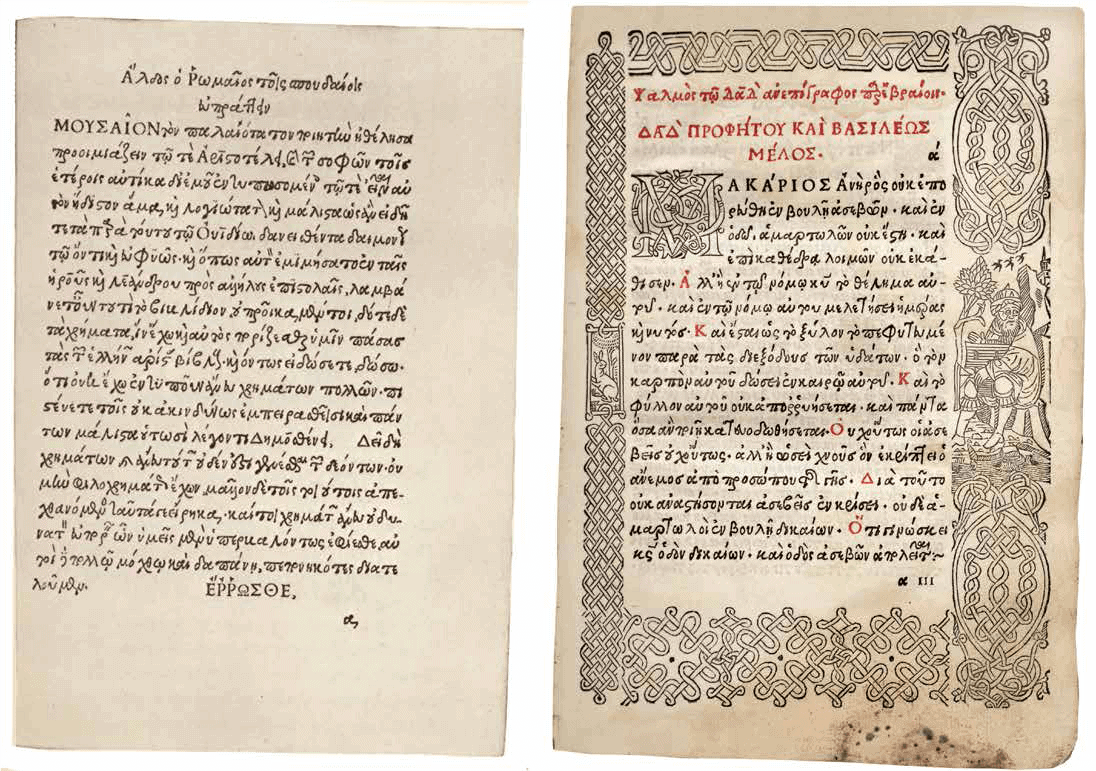 Ἄλδος ὁ Ῥωμαῖος τοῖς σπουδαίοις
εὖ πράττειν
ΜΟΥΣΑῖΟΝ τὸν παλαιότατον ποιητὴν ἠθέλησα
προοιμιάζειν τῷ τε Ἀριστοτέλει, καὶ τῶν σοφῶν τοῖς
ἑτέροις αὐτίκα δι' ἐμοῦ ἐντυπησομένοις τῷ τε εἶναι αὐ
τὸν ἥδιστον ἅμα, καὶ λογιώτατον καὶ μάλιστα ὡς ἂν εἰδῆ
τε τὰ παρὰ τούτου τῷ Ὀυϊδίῳ δανειθέντα δαιμονίου
τῷ ὄντι καὶ εὐφυῶς. καὶ ὅπως αὐτὸν ἐμιμήσατο ἐν ταῖς
ἡροῦς καὶ λεάνδρου πρὸς ἀλλήλους ἐπιστολαῖς, λαμβά
νετε οὖν τουτὶ τὸ βιβλίδιον, οὐ προῖκα, μέντοι, δότε δὲ
τὰ χρήματα, ἵν' ἔχω καὶ αὐτὸς πορίζεσθαι ὑμῖν πάσας
τὰς τῶν ἑλλήνων ἀρίστας βίβλους. καὶ ὄντως εἰ δώσετε, δώσω.
ὅτι οὐκ ἔχω ἐντυποῦν ἄνευ χρημάτων πολλῶν. πι
στεύετε τοῖς οὐκ ἀκινδύνως ἐμπειραθεῖσι. καὶ πάν
των μάλιστα οὑτωσὶ λέγοντι Δημοσθένει, Δεῖ δὴ
χρημάτων, καὶ ἄνευ τούτων οὐδὲν ἔστι γενέσθαι τῶν δεόντων. οὐ
μὴν φιλοχρημάτως ἔχων, μᾶλλον δὲ τοῖς τοιούτοις ἀπε-
χθανόμενος ταῦτά γε εἴρηκα, καίτοι χρημάτων ἄνευ οὐ δυ-
νατὸν εὐπορεῖν ὧν ὑμεῖς μὲν ὑπερκαλόντως ἐφίεσθε, αὐ
τοὶ πολλῷ μόχθῳ καὶ δαπάνῃ, πετρυκότες διατε
λοῦμεν. ἜῤῬΩΣΘΕ,
α,
Ψαλμὸς τῷ Δαδ ἀνεπίγραφος παρ' ἑβραίοις·
ΔΑΔ ΠΡΟΦΉΤΟΥ ΚΑῚ ΒΑΣΙΛΈΩΣ
ΜΈΛΟΣ· ά
ΜΑΚΆΡΙΟΣ Ἀνὴρ ὃς οὐκ ἐπο
ρεύθη ἐν βουλῇ ἀσεβῶν· καὶ ἐν
ὁδῷ ἁμαρτωλῶν οὐκ ἔστη· καὶ
ἐπὶ καθέδρα λοιμῶν οὐκ ἐκά-
θισεν· Ἀλλ' ἢ ἐν τῷ νόμῳ κυ τὸ θέλημα αὐ-
τοῦ· καὶ ἐν τῷ νόμῳ αὐτοῦ μελετήσει ἡμέρας
καὶ νυκτός· Καὶ ἔσται ὡς τὸ ξύλον τὸ πεφυτευμέ
νον παρὰ τὰς διεξόδους τῶν ὑδάτων· ὃ τὸν
καρπὸν αὐτοῦ δώσει ἐν καιρῷ αὐτοῦ· Καὶ τὸ
φύλλον αὐτοῦ οὐκ ἀποῤῥυήσεται· καὶ πάντα
ὅσα ἂν ποιῇ κατευοδωθήσεται· Οὐχ οὕτως οἱ ἀσε
βεῖς οὐχ οὕτως· ἀλλ' ἢ ὡσεὶ χνοῦς ὃν ἐκρίπτει ὁ
ἄνεμος ἀπὸ προσώπου τῆς γῆς· Διὰ τοῦτο
οὐκ ἀναστήσονται ἀσεβεῖς ἐν κρίσει· οὐδὲ ἁ-
μαρτωλοὶ ἐν βουλῇ δικαίων· Ὅτι γινώσκει
κς ὁδὸν δικαίων· καὶ ὁδὸς ἀσεβῶν ἀπολεῖται:~
α III